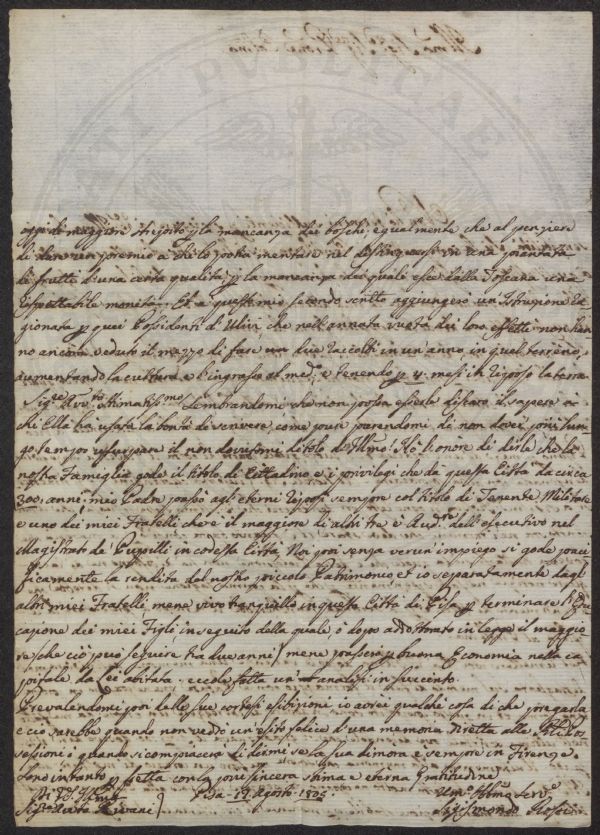 PUBLICAE
oggi di maggiore strepito p la mancanza dei boschi, egualmente che al pensiere
di dare un premio a chi lo
di frutti d'una certa qualità p la mancanza dei quali esce dalla Toscana una
rispettabile moneta. Et a questo mio secondo scritto aggiungerò un'Istruzione ra
gionata p quei Possidenti d'Ulivi, che nell'annata vuota dei loro effetti non han
no ancora veduto il mezzo di fare un due raccolti in un'anno in quel terreno,
aumentando la cultura e l'ingrasso al med.º e tenendo p 4. mesi in riposo la terra.
Sig.re Avv.to Stimatis.mo Lembrandomi che non possa esserle discaro il sapere a
chi Ella ha usata la bontà di scrivere come pure parendomi di non dover più lun
go tempo usurpare il non dovutomi titolo d'Illmo: Hò l'onore di dirle che la
nostra Famiglia gode il titolo di Cittadino e i privilegi che dà questa Città da circa
300: anni: mio Padre passò agli eterni riposi sempre col titolo di Tenente Militare
e uno dei miei Fratelli che è il maggiore di altri tre è Aud.re dell'esecutivo nel
Magistrato de Pupilli in codesta Città, Noi poi senza verun'impiego si gode paci
ficamente la rendita del nostro piccolo Patrimonio et io separatamente dagl'
altri miei Fratelli me ne vivo tranquillo in questa Città di Pisa p terminare l'Edu
cazione dei miei Figli, in seguito della quale, e dopo addottorato in legge il maggio
re (che ciò può seguire tra due anni) me ne passerò p buona Economia nella ca
pitale da Lei abitata: eccole fatta un'analisi in succinto.
Prevalendomi poi delle sue cortesi esibizioni, io avrei qualche cosa di che pregarla
e ciò sarebbe quando non vedo un'esito felice d'una memoria diretta alle
sessioni; quando si compiacerà di dirmi se la sua dimora è sempre in Firenze.
Sono intanto p fretta con la più sincera stima e eterna Gratitudine
Di VS. Illma
Sig.re Avv.to Rivani
Pisa 19. Agosto 1805
Umo Obbmo Serv.e
Sigismondo